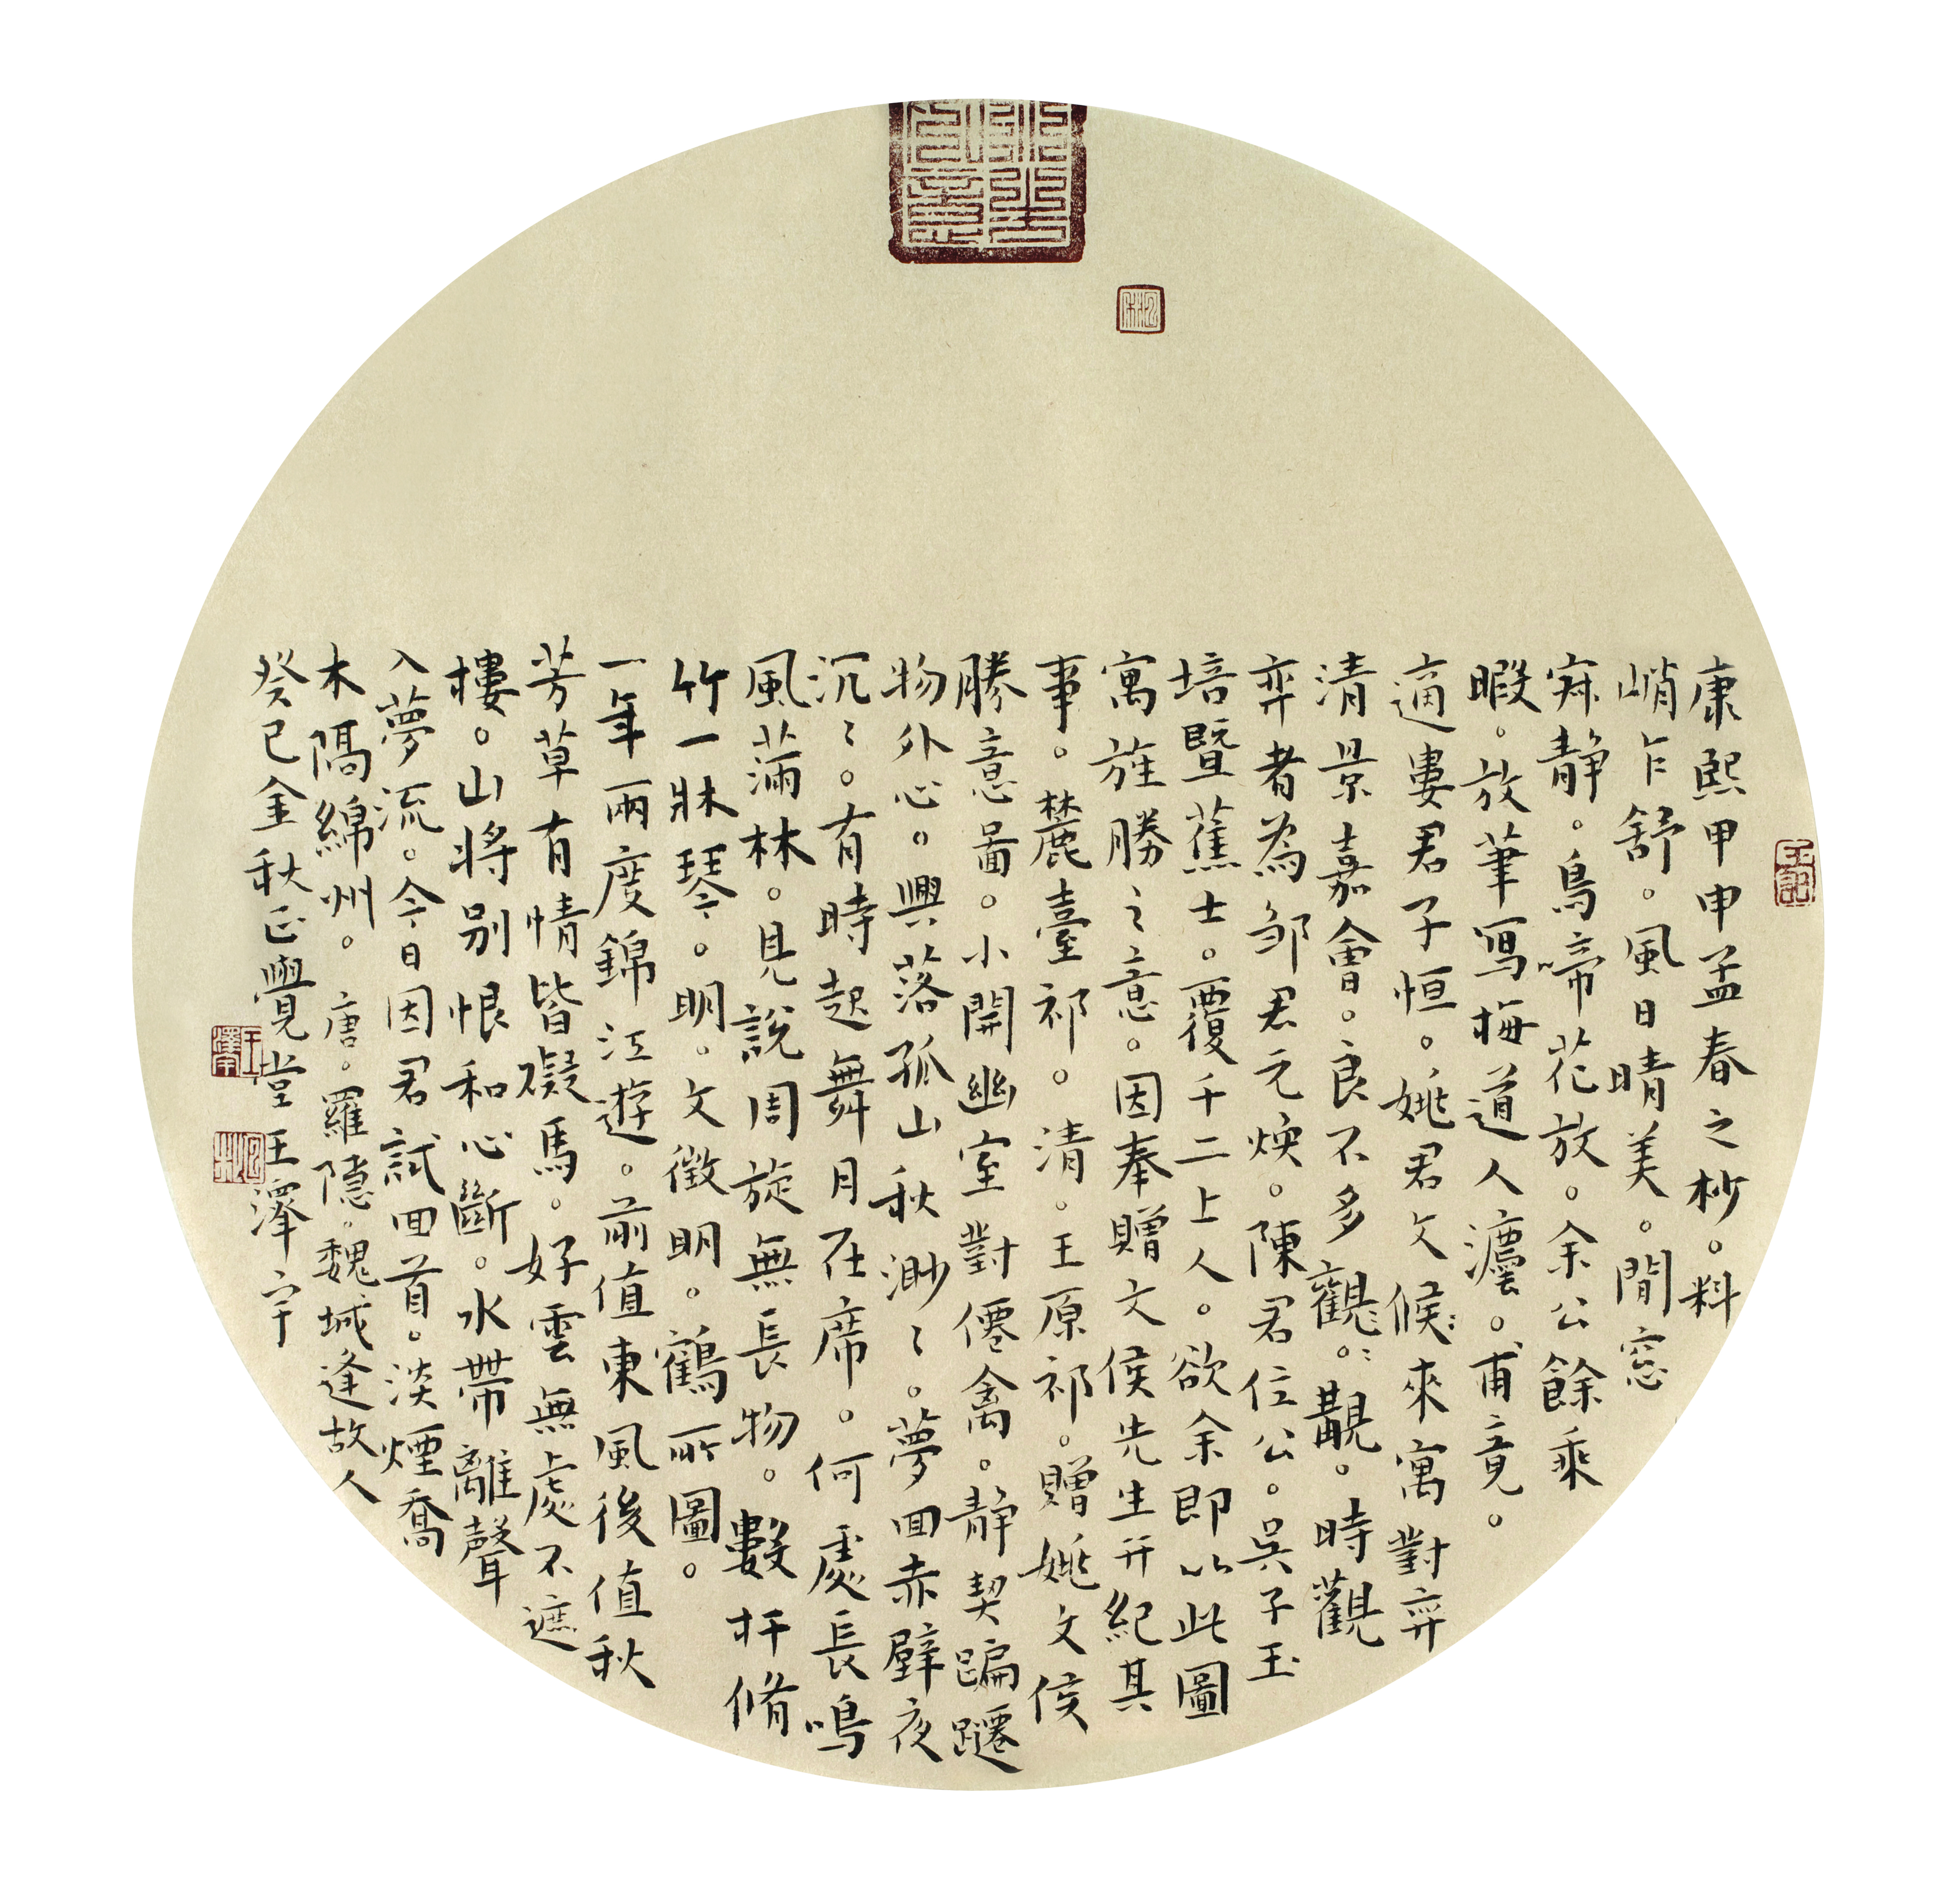 康熙甲申孟春之杪。料
峭乍舒。風日晴美。閒窓
寂静。鳥啼花放。余公餘乘
暇。放筆寫梅道人灋。甫竟。
適婁君子恒。姚君文候來寓對弈
清景嘉會。良不多觀。覯。時觀
弈者為邹君元焕。陳君位公。吳子玉
培暨蕉士。覆千二上人。欲余即以此圖
寓旌勝之意。因奉贈文侯先生并紀其
事。麓臺祁。清。王原祁。贈姚文侯
勝意啚。小開幽室對僊禽。静契蹁躚
物外心。興落孤山秋渺々。夢回赤壁夜
沉々。有時起舞月在席。何處長鳴
風滿林。見說周旋無長物。數杆脩
竹一牀琴。明。文徵明。鶴所圖。
一年兩度錦江遊。前值東風後值秋
芳草有情皆礙馬。好雲無處不遮
樓。山将别恨和心斷。水帶離聲
入夢流。今日因君試回首。淡煙喬
木隔綿州。唐。羅隱。魏城逢故人
癸巳金秋正覺堂王澤宇